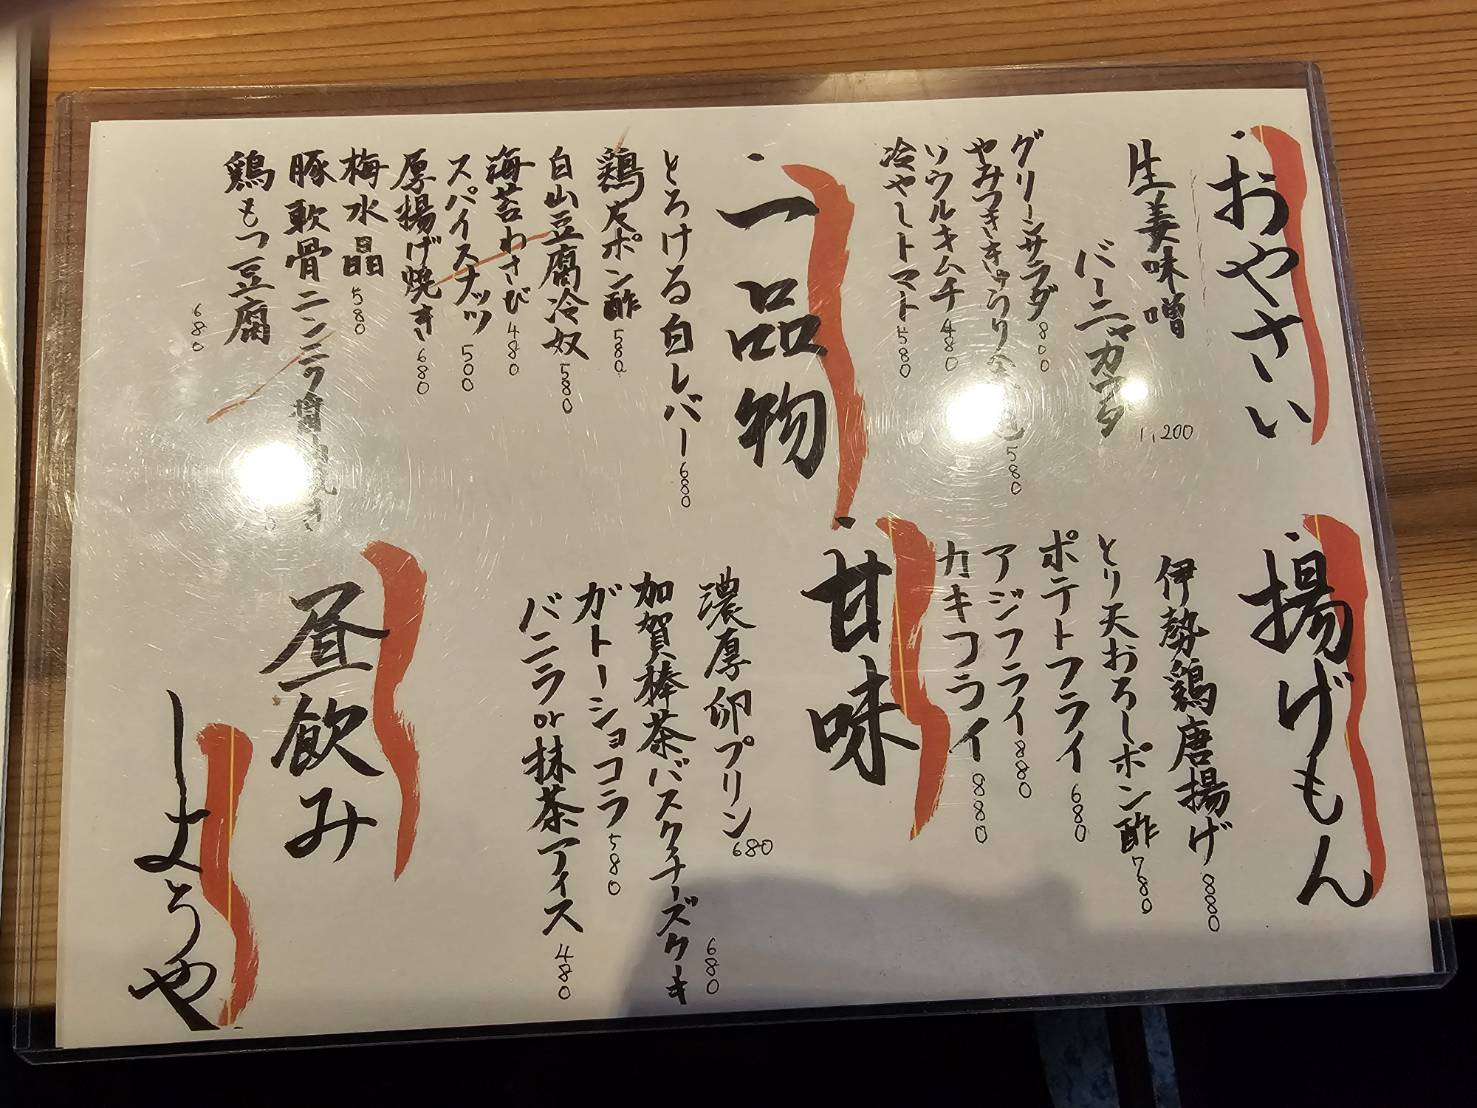 おやさい
生姜味噌
バーニャカウダ
1,200
グリーンサラダ 800
やみつききゅうり 580
ソウルキムチ 480
冷やしトマト 580
一品物
とろける白レバー 680
鶏皮ポン酢 580
白山豆腐冷奴 580
海苔わさび 480
スパイスナッツ 500
厚揚げ焼き 680
梅水晶 580
豚軟骨ニンニク
鶏もつ豆腐
680
揚げもん
伊勢鶏唐揚げ 880
とり天おろしポン酢 780
ポテトフライ 680
アジフライ 880
カキフライ 880
甘味
濃厚卵プリン 680
加賀棒茶バスクチーズケーキ 680
ガトーショコラ 580
バニラor抹茶アイス 480
昼飲み
しようや